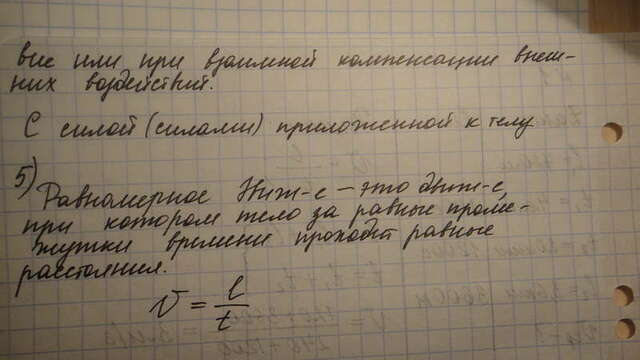 вие или при взаимной компенсации внеш-
них воздействий.
С силой (силами) приложенной к телу
5)
Равномерное движ-е – это движ-е,
при котором тело за равные проме-
жутки времени проходит равные
расстояния.
V = l/t